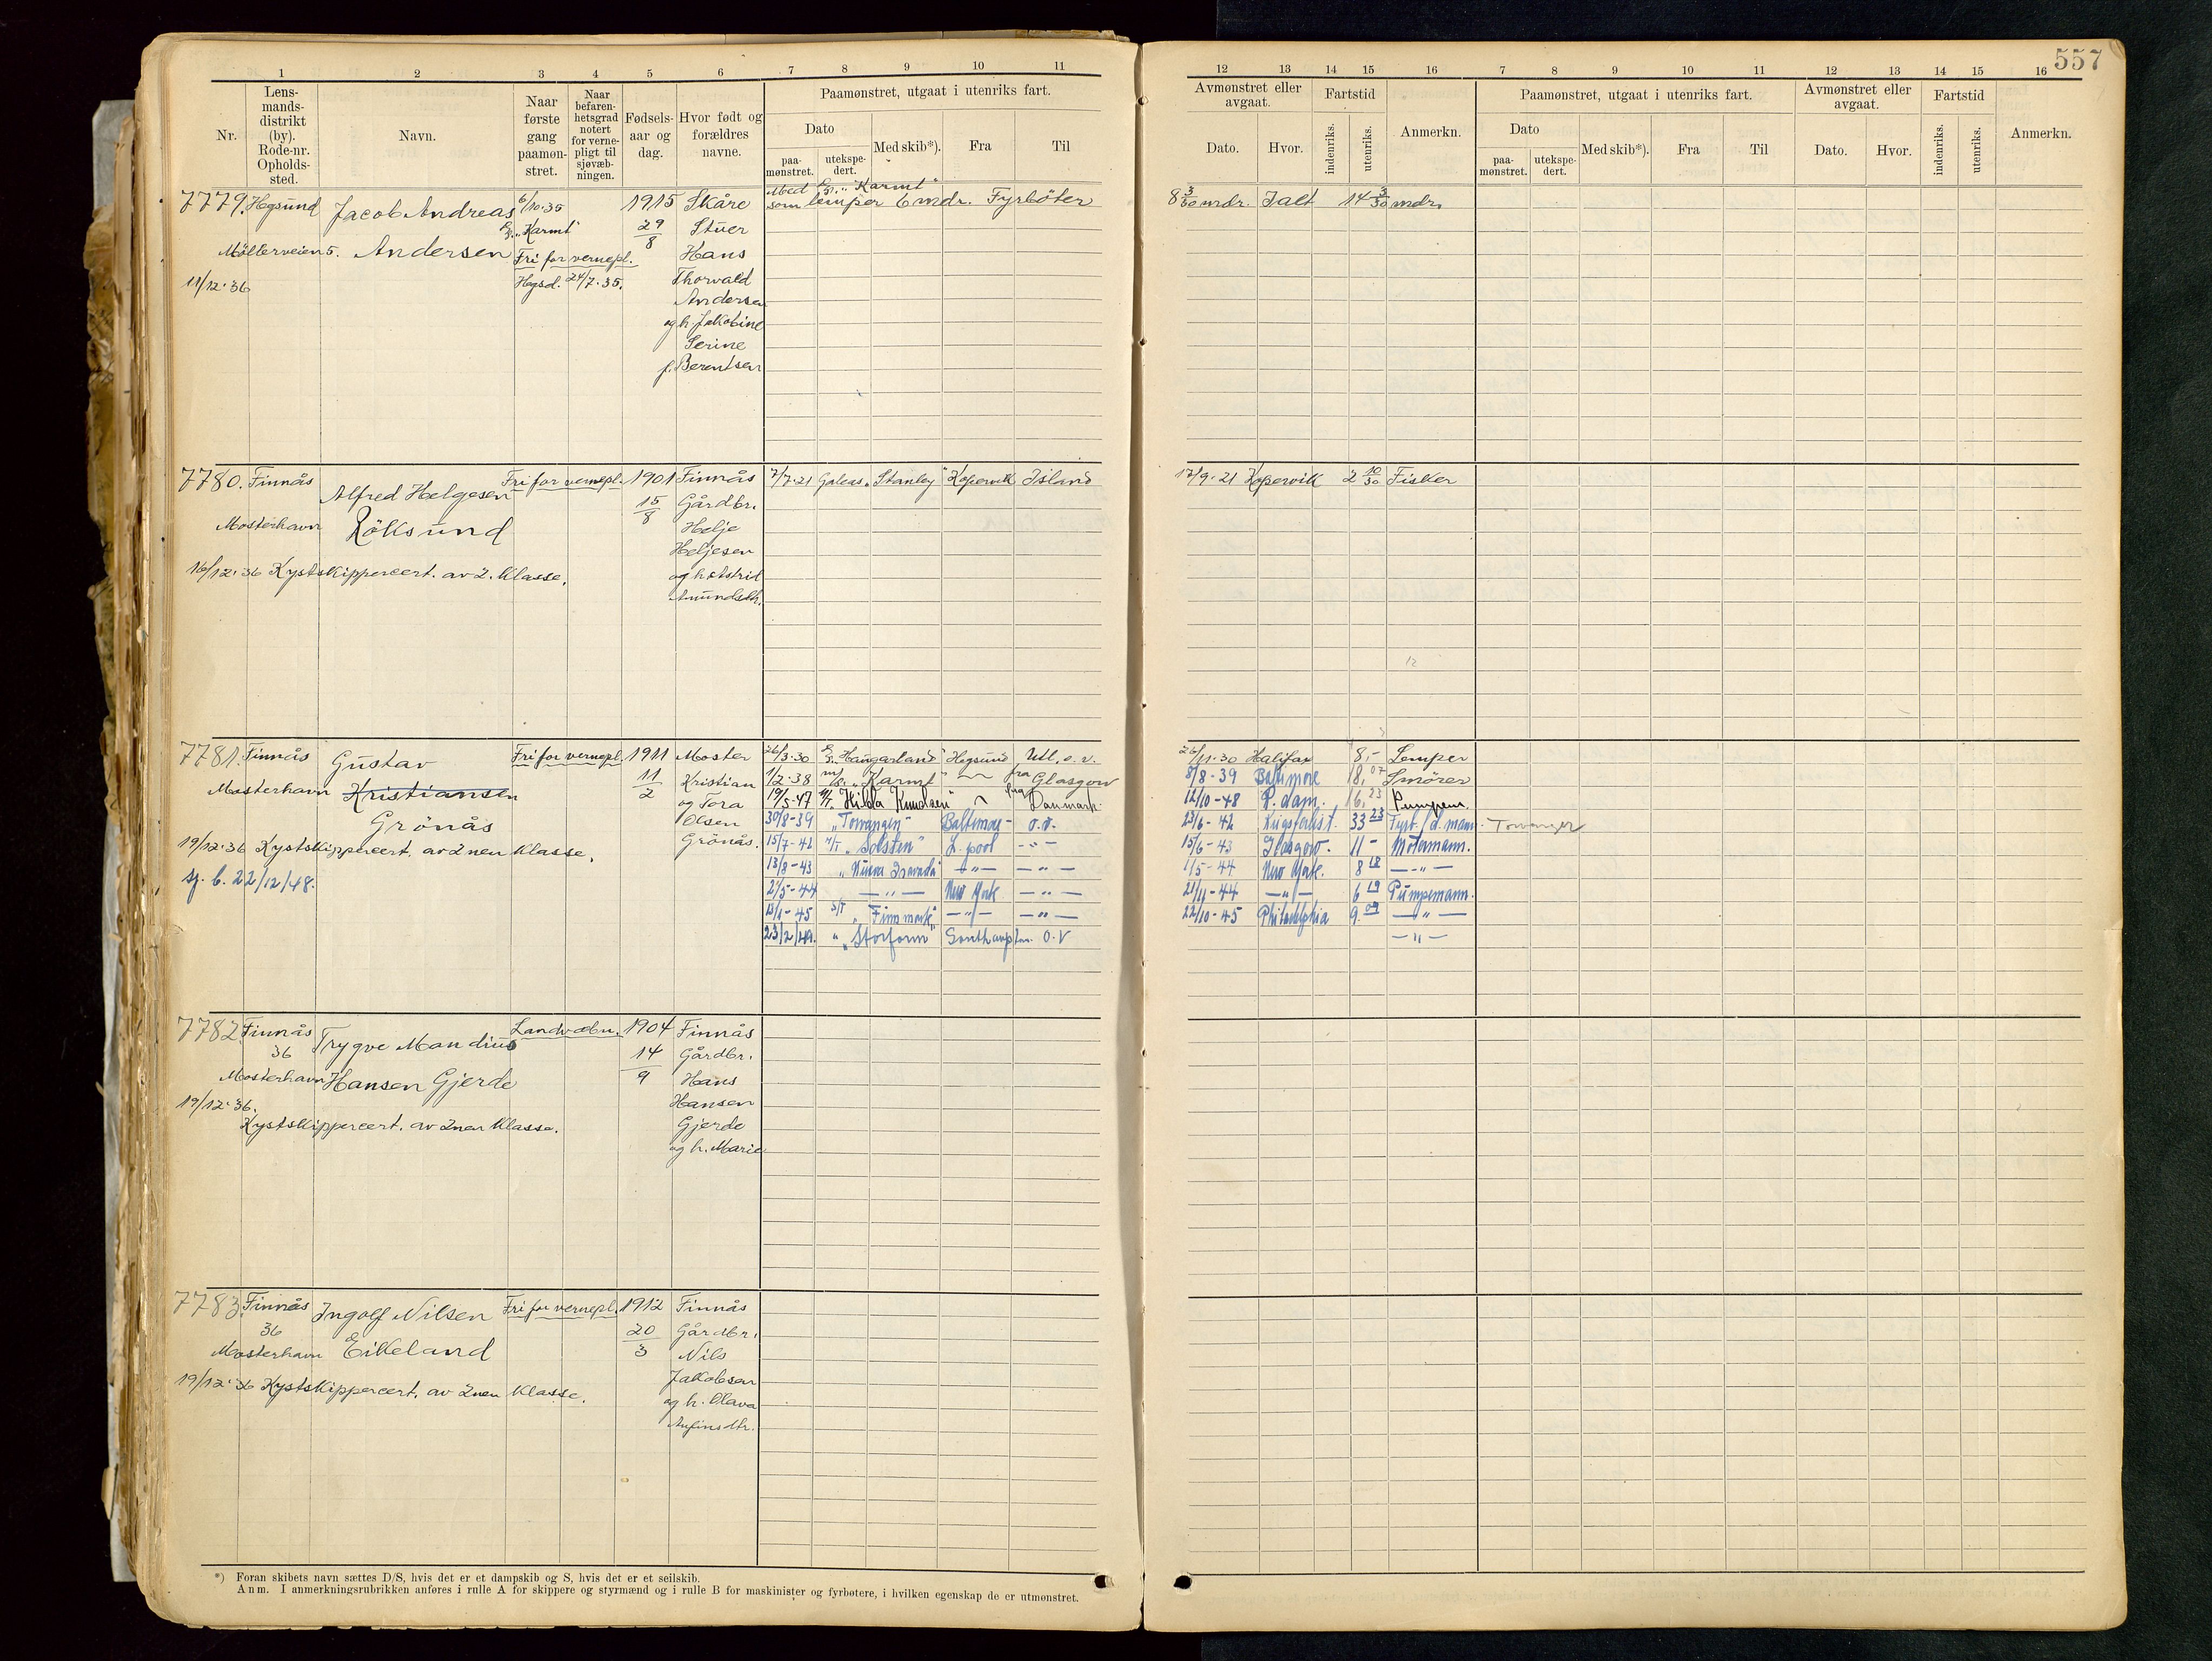 557
1 2 3 4 5 6 7 8 9 10 11
12 13 14 15 16 7 8 9 10 11 12 13 14 15 16
Nr.
Lens-
mands-
distrikt
(by).
Rode-nr.
Opholds-
sted.
Navn.
Naar
første
gang
paamøn-
stret.
Naar
befaren-
hetsgrad
notert
for verne-
pligt til
sjøvæb-
ningen.
Fødsels-
aar og
dag.
Hvor født og
forældres
navne.
Paamønstret, utgaat i utenriks fart.
Dato
paa-
mønstret.
utekspe-
dert.
Med skib*).
Fra
Til
Avmønstret eller
avgaat.
Dato.
Hvor.
Fartstid
indenriks.
utenriks.
Anmerkn.
Paamønstret, utgaat i utenriks fart.
Dato
paa-
mønstret.
utekspe-
dert.
Med skib*).
Fra
Til
Avmønstret eller
avgaat.
Dato.
Hvor.
Fartstid
indenriks.
utenriks.
Anmerkn.
7779. Hgsund
Möllerveien 5.
11/12·36
Jacob Andreas
Andersen
6/10·35
"Karmt"
Fri for vernepl.
Hgsd. 24/7·35.
1915
29/8
Skåre
Stuer
Hans
Thorvald
Andersen
og h. Jakobine
Serine
f. Berentsen
Med "Karmt"
som lemper 6 mdr. Fyrböter
8 3/30 mdr. Ialt 14 3/30 mdr.
7780. Finnås
Mosterhavn
16/12·36 Kystskippercert. av 2. Klasse.
Alfred Helgesen
Röksund
Fri for vernepl.
1901
15/8
Finnås
Gårdbr.
Helje
Heljesen
Amundsdtr.
7/7·21 Galeas "Stanley" Kopervik Island
17/9·21 Kopervik 2 10/30 Fisker
12
7781. Finnås
Mosterhavn
Gustav
Kristiansen
Grönås
19/12·36 Kystskippercert. av 2nen Klasse.
sj. b. 22/12/48.
Fri for vernepl.
1911
11/2
Moster
Kristian
og Tora
Olsen
Grönås.
26/3·30 "Haugarland" Hgsund Utl. o. v.
26/11·30 Halifax 8,- Lemper
1/2·38 "Karmt" —"— fra Glasgow
8/8-39 Baltimore 18,07 Smörer
19/5-47 M/T. "Hilda Knudsen" fra Danmark.
12/10-48 R.dam. 16,23 Pumpem.
30/8-39 "Torvanger" Baltimore - o.v.
23/6-42 Krigsforlist. 33 23 Fyrb./d. mann. - Torvanger
15/7-42 M/T "Solstein" L.pool —"—
15/6-43 Glasgow. 11 - Motormann.
13/8-43 —"— —"—
1/5-44 New York. 8 18 —"—
2/5-44 —"— New York —"—
21/11-44 —"— 6 19 Pumpemann.
13/1-45 S/T "Finnmark" —"— —"—
22/10-45 Philadelphia 9.09 —"—
23/2/49. " "Storform" Southampton. O.V
—"—
7782. Finnås
36
Mosterhavn
19/12·36.
Kystskippercert. av 2nen Klasse.
Trygve Mandius
Hansen Gjerde
Landvæbn.
1904
14/9
Finnås
Gårdbr.
Hans
Hansen
Gjerde
og h. Marie
7783. Finnås
36
Mosterhavn
Ingolf Nilsen
Eikeland
19/12·36 Kystskippercert. av 2nen Klasse.
Fri for vernepl.
1912
20/3
Finnås
Gårdbr.
Nils
Jakobsen
og h. Olava
Anfinsdtr.
*) Foran skibets navn sættes D/S, hvis det er et dampskib og S, hvis det er et seilskib.
Anm. I anmerkningsrubrikken anføres i rulle A for skippere og styrmænd og i rulle B for maskinister og fyrbøtere, i hvilken egenskap de er utmønstret.